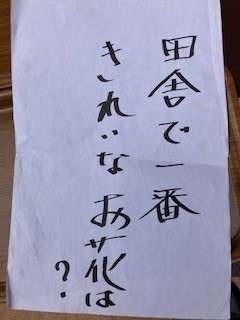 田舎で一番
きれいな お花は
？